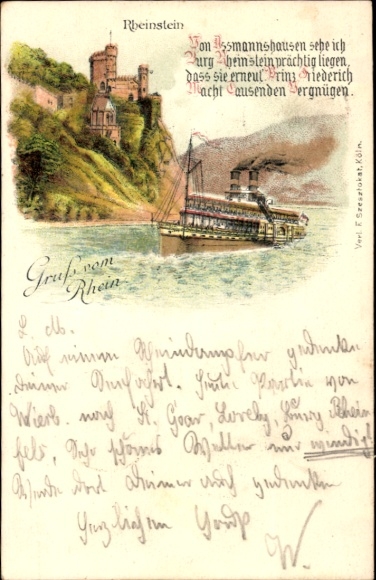 Rheinstein
Von Assmannshausen sehe ich
Burg Rheinstein prächtig liegen,
dass sie erneut Prinz Friederich
Macht Tausenden Vergnügen.
Verl. F. Szesztokat, Köln.
Gruß vom
Rhein
L. M.
Auf einem Rheindampfer gedenke
Deiner Heute Partie von
Wiesb. nach St. Goar, Loreley, Burg Rhein
fels, Sehr schönes Wetter nur windig!
Werde dort Deiner auch gedenken
Herzlichen Gruß
W.